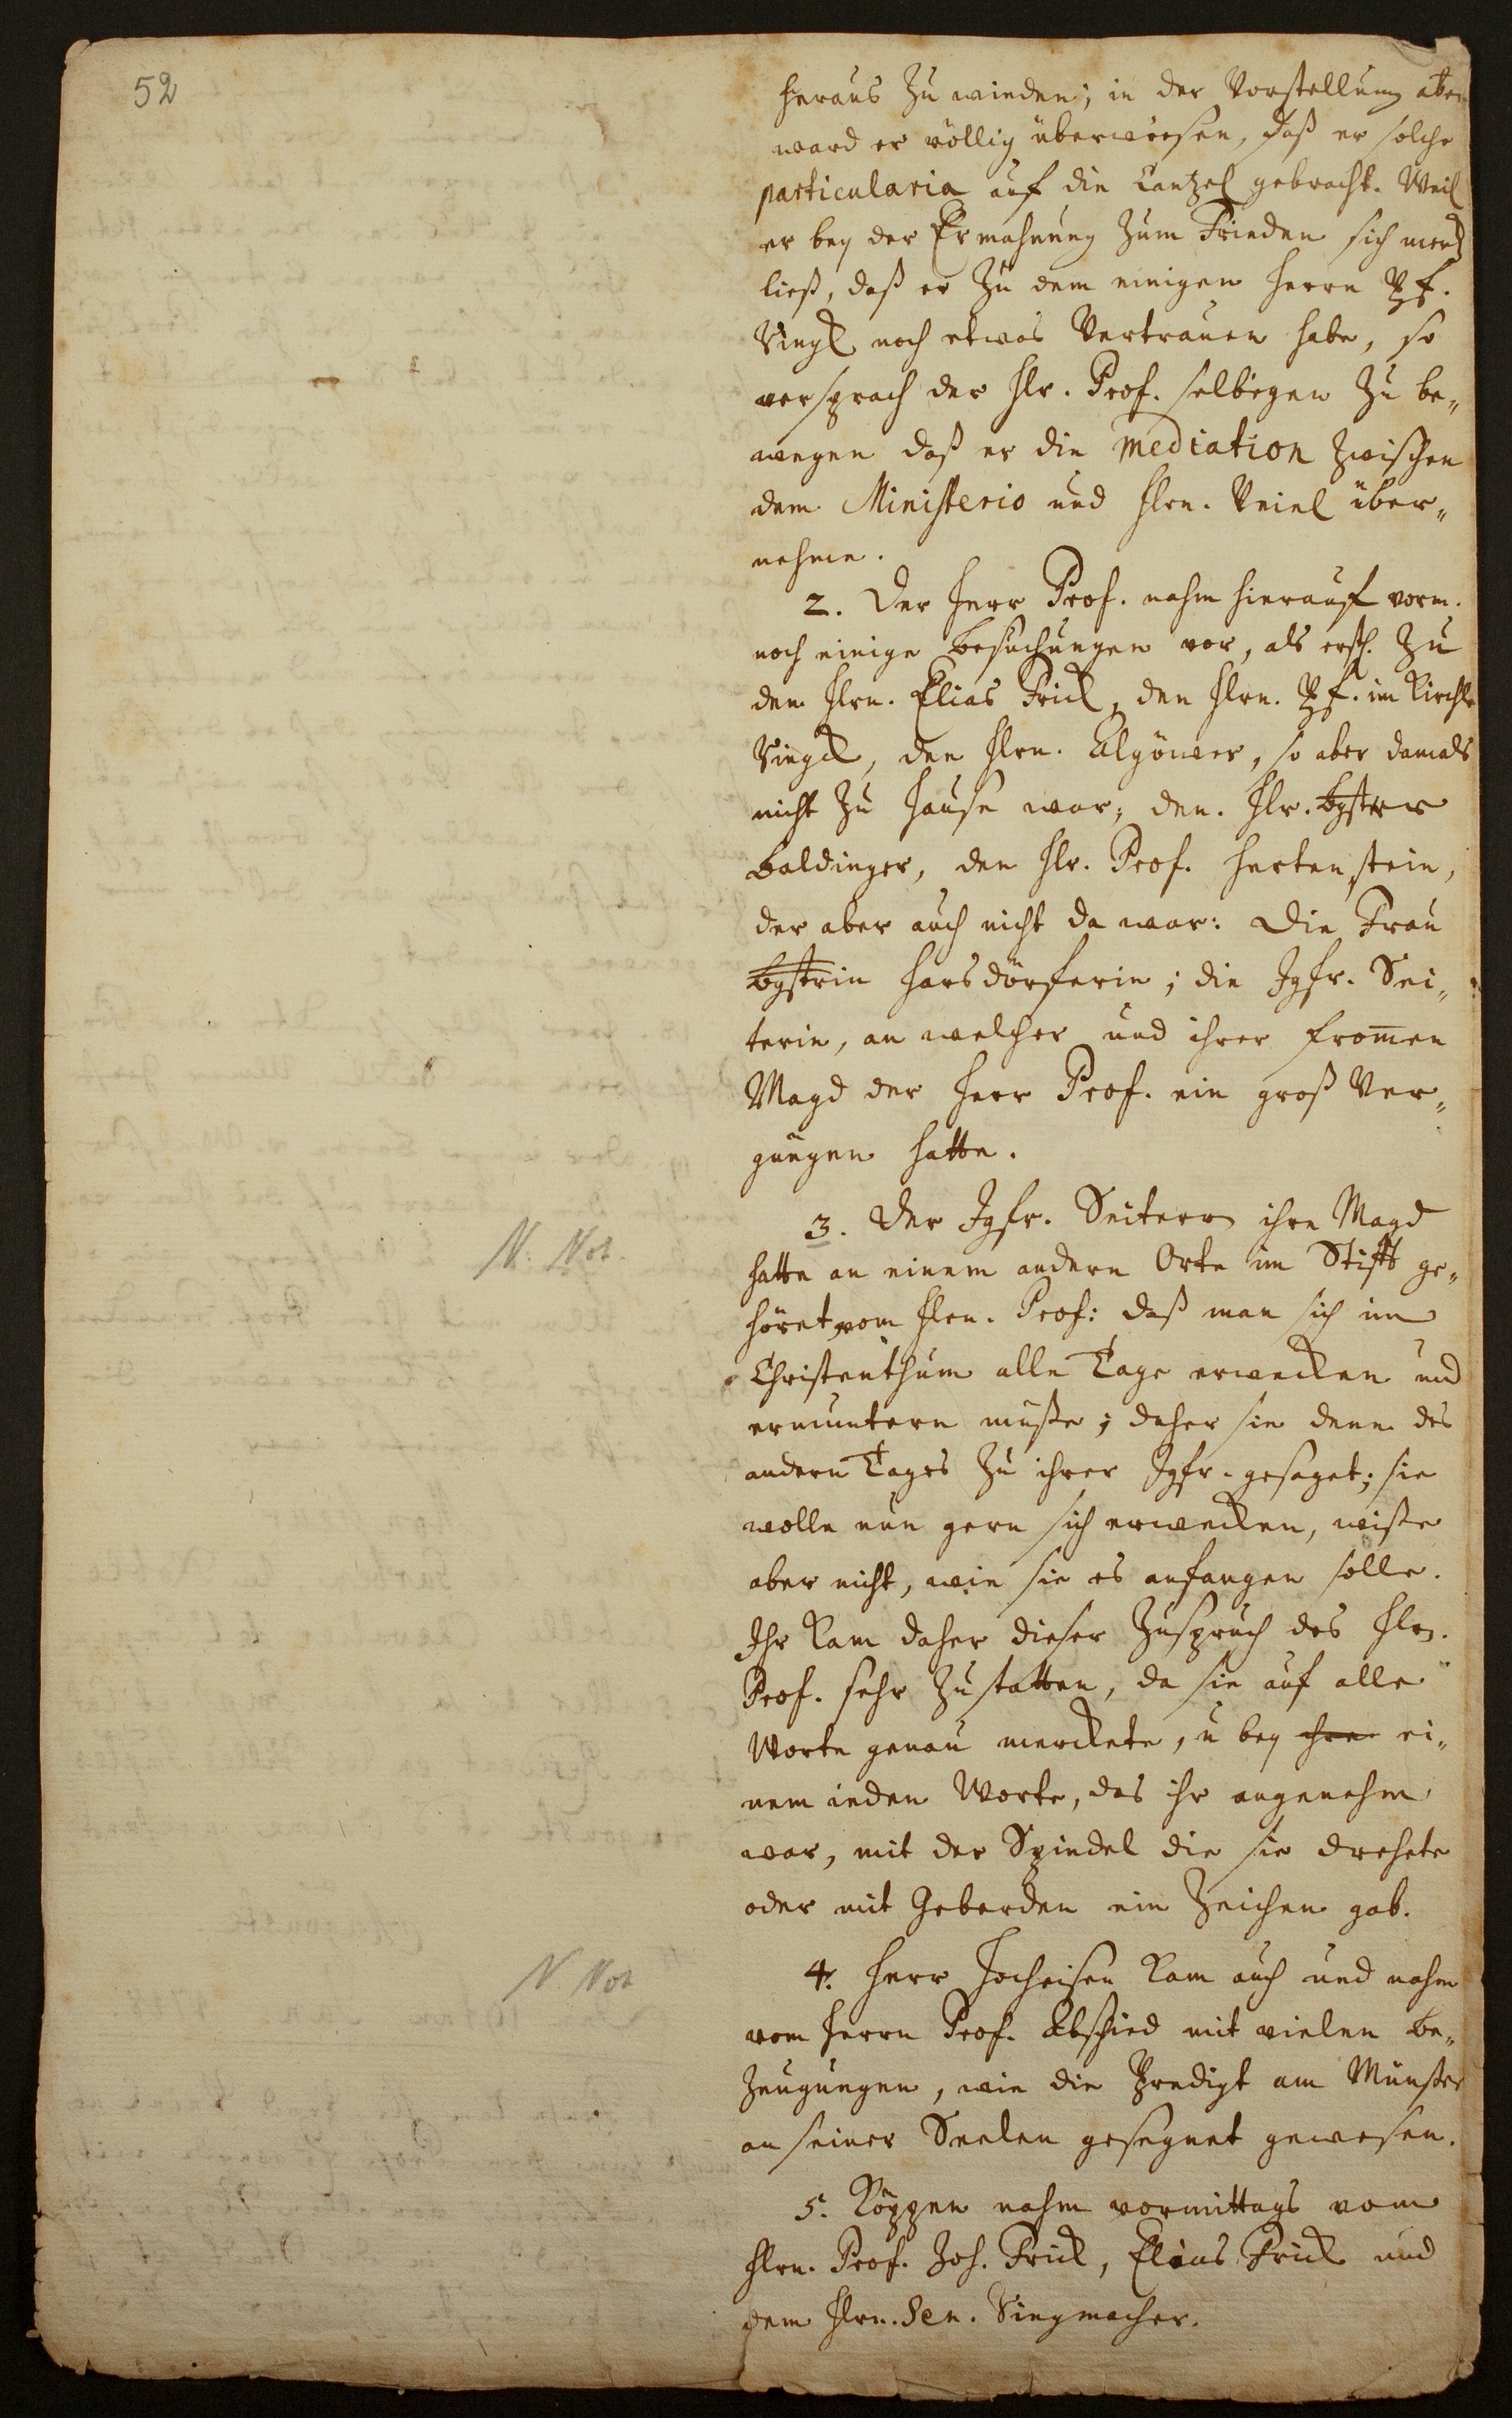 52
heraus zu winden; in der Vorstellung aber
ward er völlig überwiesen, daß er solche
particularia auf die Cantzel gebracht. Weil
er bey der Ermahnung zum Frieden sich merck
ließ, daß er zu dem einigen Herrn Pf.
noch etwas Vertrauen habe, so
versprach der Hr. Prof. selbigen zu be-
wegen daß er die mediation zwischen
dem Ministerio und Hrn. Veiel über-
nehme.
2. Der Herr Prof. nahm hierauf vorm.
noch einige Besuchungen vor, als erstl. zu
den Hrn. Elias Frick, den Hrn. Pf. im Kirchl.
den Hrn. Algöwer, so aber damals
nicht zu Hause war; den Hr.
Baldinger, den Hr. Prof. Hertenstein,
der aber auch nicht da war: Die Frau
Harsdörferin; die Jgfr. Sei-
terin, an welcher und ihrer fromen
Magd der Herr Prof. ein groß Ver-
gnügen hatte.
3. Der Jgfr. Seitern ihre Magd
N. Not.
hatte an einem andern Orte im Stifft ge-
höret vom Hrn. Prof: daß man sich im
Christenthum alle Tage erwecken und
ermuntern müste; daher sie denn des
andern Tages zu ihrer Jgfr. gesaget; sie
wolle nun gern sich erwecken, wiste
aber nicht, wie sie es anfangen solle.
Ihr kam daher dieser Zuspruch des Hrn.
Prof. sehr zustatten, da sie auf alle
Worte genau merckete, u bey ihre ei-
nem ieden Worte, das ihr angenehm
war, mit der Spindel die sie drehete
oder mit Geberden ein Zeichen gab.
4. Herr Hocheisen kam auch und nahm
N. Not
vom Herrn Prof. Abschied mit vielen Be-
zeugungen, wie die Predigt am Münster
an seiner Seelen gesegnet gewesen.
5. Köppen nahm vormittags vom
Hrn. Prof. Joh. Frick, Elias Frick und
dem Hrn. Sen. Singmacher.